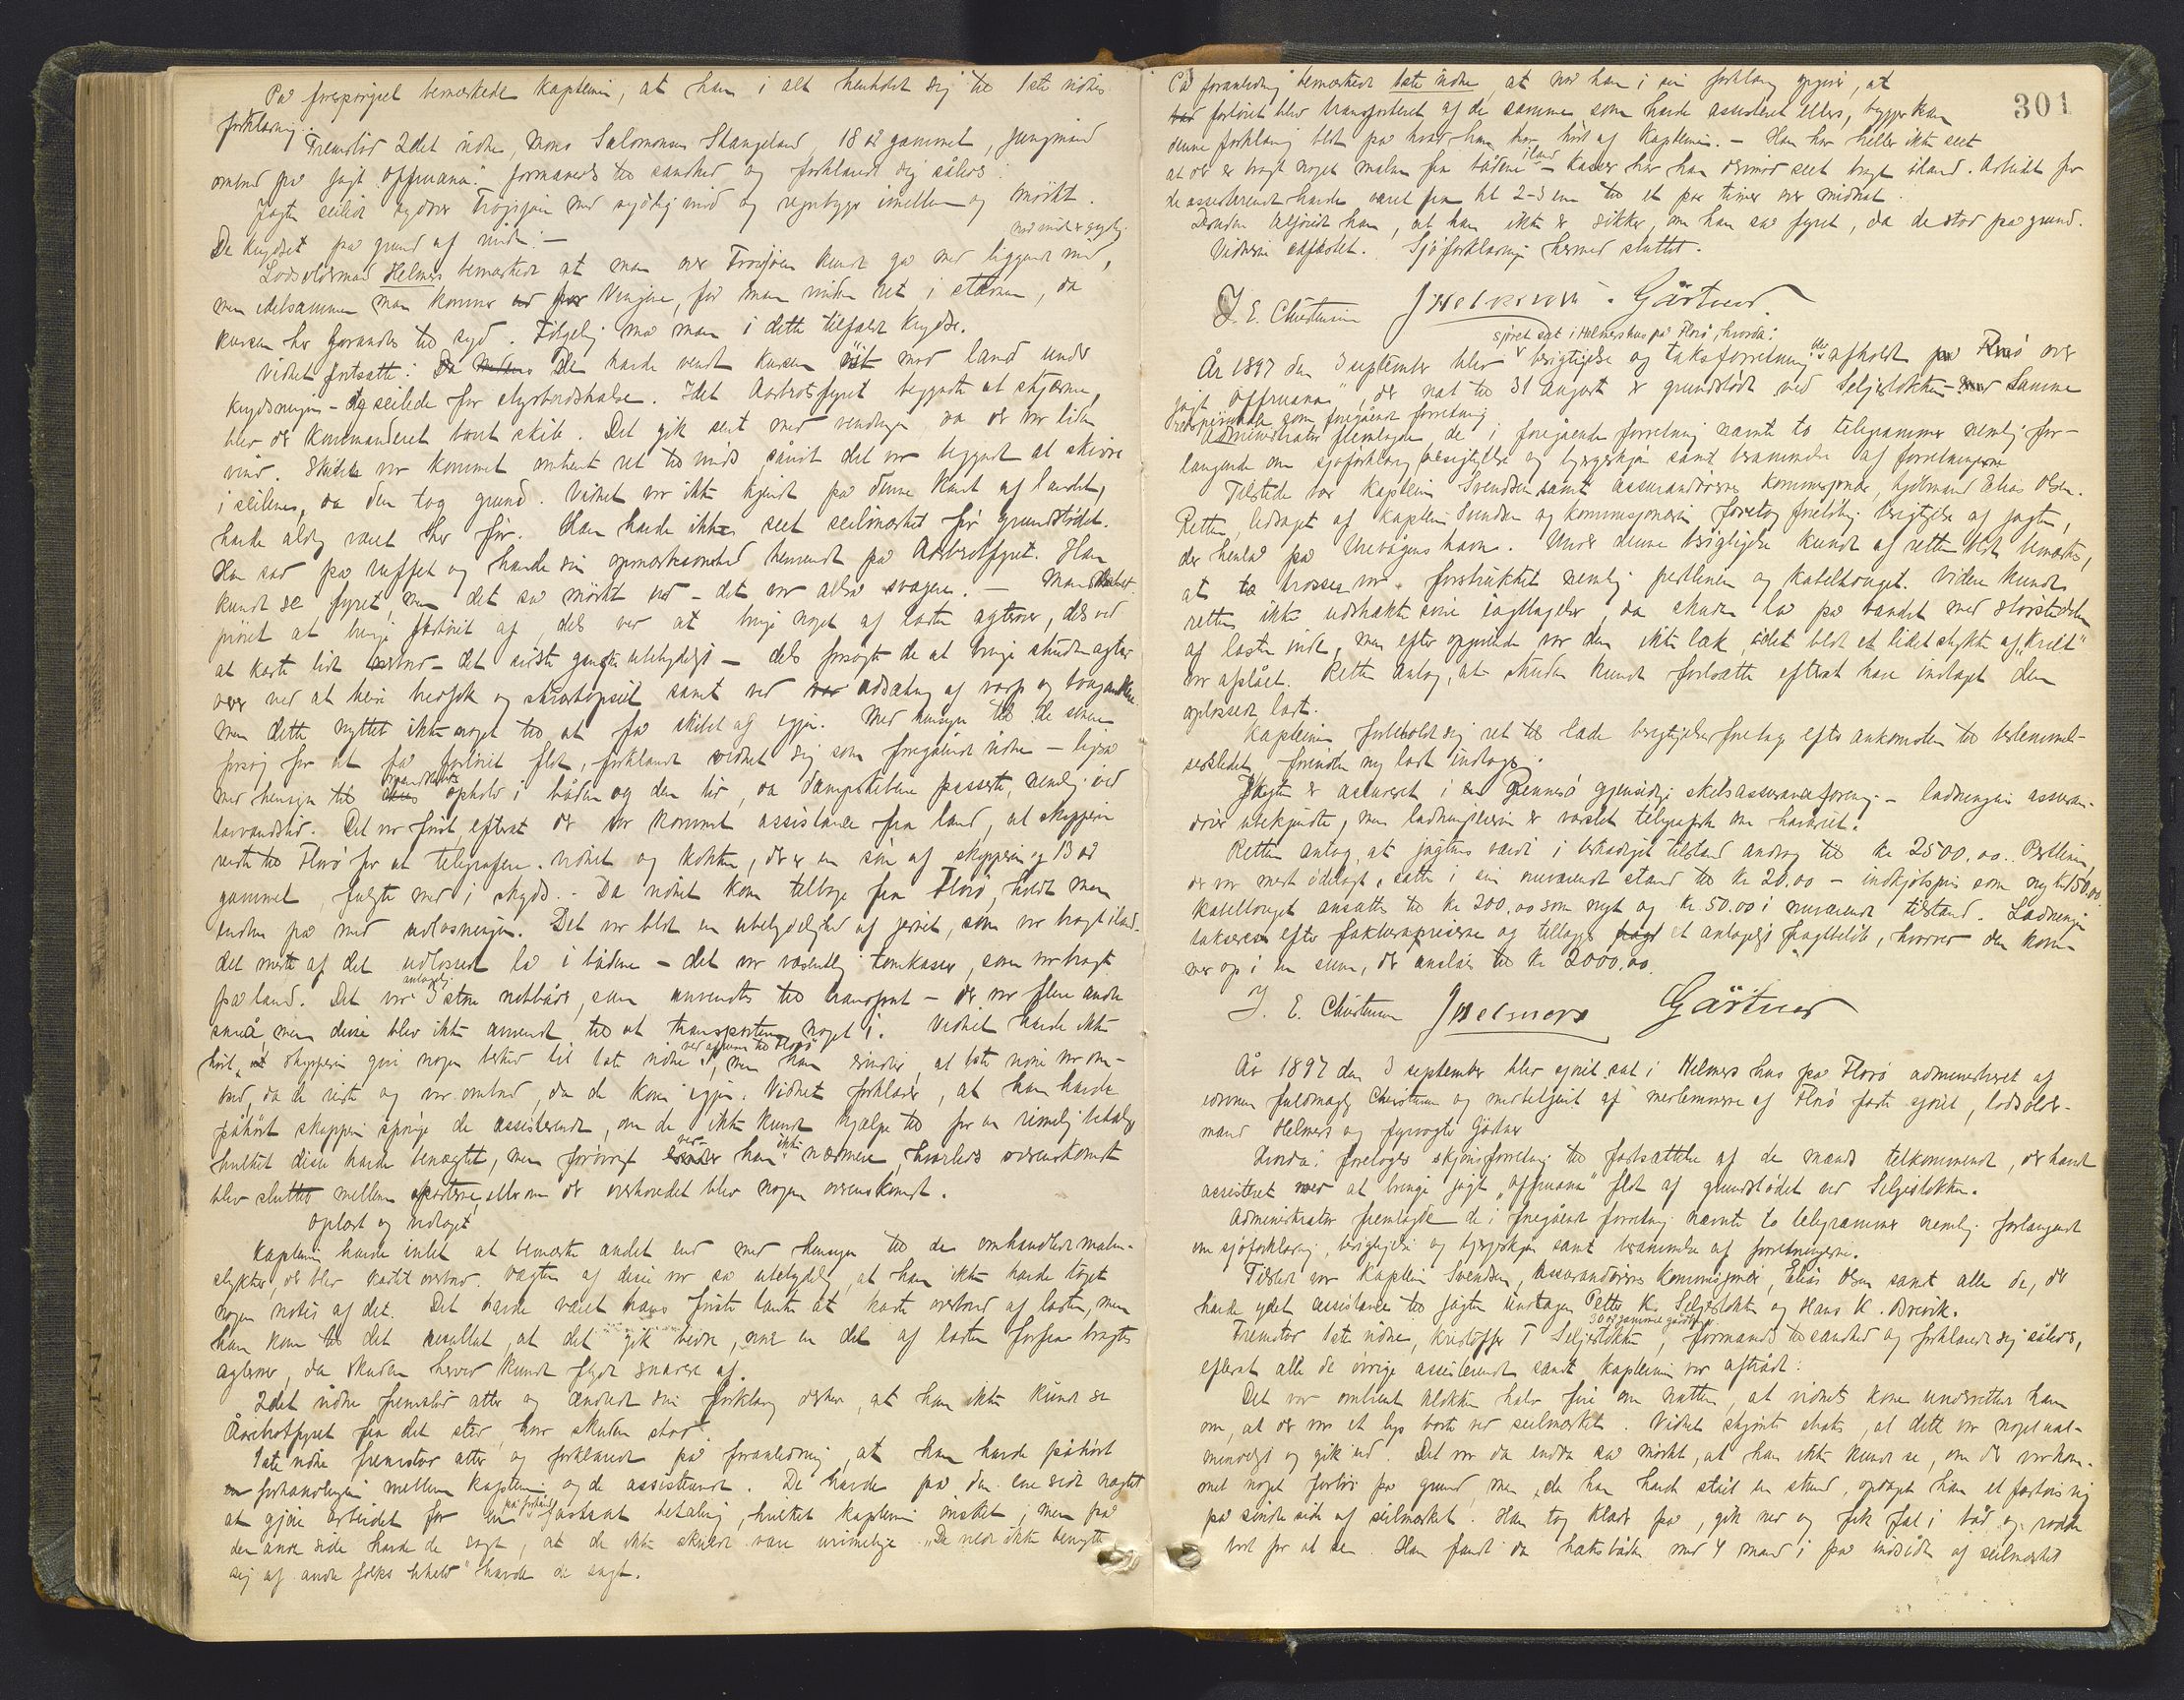 På forespørgsel bemærkede kapteinen, at han i alt henholdt sig til 1ste vidnes
forklaring.
Fremstod 2det vidne, Mons Salomonsen Skangeland, 18 år gammel, jungmand
ombord på jagt "Offruana" formanedes til sandhed og forklarede sig således:
Jagten seilede sydover Frøysjøen med sydlig vind og regnbyger imellem og mørkt.
De krydset på grund af vinden. —
når vind er sydlig
Lodsoldermand Helmers bemærkede at man over Frøisjøen kunde gå med liggende vind,
men idetsamme man kommer ved Vingene, får man vinden ret i stævnen, da
kursen her forandres til syd. Følgelig må man i dette tilfælde krydse.
Vidnet fortsatte: De havde vendt kursen mod land under
krydsningen – og seilede for styrbordshalse. Idet Aarebrotfyret begyndte at skjærme,
blev der kommanderet vendt skib. Det gik sent med vendingen da der var liden
vind. Skibet var kommet omtrent ret til vinds, såvidt det var begyndt at skivre
i seilene, da den tog grund. Vidnet var ikke kjendt på denne kant af landet,
havde aldrig været her før. Han havde ikke seet seilmærket før grundstødet.
Han sad på ruffet og havde sin opmærksomhed henvendt på Aarebrotfyret. Han
kunde se fyret, men det så mørkt ud – det var altså svagere. – Mandskabet
prøvet at bringe fartøiet af, dels ved at bringe noget af lasten agterover, dels ved
at kaste lidt overbord – det sidste ganske ubetydeligt – dels forsøgte de at bringe skuden agter
over ved at heise bredfok og skværtopseil samt ved udsætning af varp og
men dette nyttet ikke noget til at få skibet af igjen. Med hensyn til de senere
forsøg for at få fartøiet flot, forklarede vidnet sig som foregående vidne – ligeså
med hensyn til mandskabets ophold i båden og den tid, da dampskibene passerte, nemlig ved
lavvandstid. Det var først, efterat der var kommet assistance fra land, at skipperen
reiste til Florø for at telegrafere. Vidnet og kokken, der er en søn af skipperen og 13 år
gammel, fulgte med i skyds. – Da vidnet kom tilbage fra Florø, holdt man
endnu på med udlosningen. Det var blot en ubetydelighed af jernet, som var bragt iland.
det meste af det udlossede lå i bådene – det var væsentlig tomkasser, som var bragt
på land. Det var antagelig 3 store notbåde, som anvendtes til transport – der var flere andre
små, men disse blev ikke anvendt til at transportere noget i. Vidnet havde ikke
ved afreisen til Florø
hørt, at skipperen gav nogen besked til 1ste vidne, men han erindrer, at 1ste vidne var om-
bord, da de reiste og var ombord, da de kom igjen. Vidnet forklarer, at han havde
påhørt skipperen spørge de assisterende, om de ikke kunde hjælpe til for en rimelig betaling
hvilket disse havde benægtet, men forøvrigt ved han ikke nærmere, hvorledes overenskomst
blev sluttet mellem parterne, eller om der overhovedet blev nogen overenskomst.
Oplæst og vedtaget
Kapteinen havde intet at bemærke andet end med hensyn til de omhandlede malm-
stykker, der blev kastet overbord. Vægten af disse var så ubetydelig, at han ikke havde taget
nogen notis af det. Det havde været hans første tanke at kaste overbord af lasten, men
han kom til det resultat, at det gik bedre, når en del af lasten forfra bragtes
agterover, da skuden herved kunde flyde snarere af.
2det vidne fremstod atter og ændrede sin forklaring derhen, at han ikke kunde se
Årebrotfyret fra det sted, hvor skuden stod.
1ste vidne fremstod atter og forklarede på foranledning, at han havde påhørt
forhandlingen mellem kapteinen og de assisterende. De havde på den ene side nægtet
at gjøre arbeidet for en på forhånd fastsat betaling, hvilket kapteinen ønsket; men på
den anden side havde de sagt, at de ikke skulde være urimelige. "De vilde ikke benytte
sig af andre folks uheld" havde de sagt.
301
På foranledning bemærkede 1ste vidne, at når han i sin forklaring opgiver, at
fartøiet blev transporteret af de samme som havde assisteret ellers, bygger han
denne forklaring blot på hvad han har hørt af kapteinen. – Han har heller ikke seet
at der er bragt noget malm fra bådene iland – kasser har han derimod seet bragt iland. Arbeidet for
de assisterende havde varet fra kl 2-3 em til et par timer over midnat.
Desuden tilføiede han, at han ikke er sikker, om han så fyret, da de stod på grund.
Vidnerne edfæstet. Sjøforklaringen hermed sluttet.
J. E. Christensen J Helmers. Gärtner
sjøret sat i Helmers hus på Florø, hvorda:
År 1897 den 3 september blev besigtigelse og taksforretning afholdt over
jagt "Offruana", der nat til 31 august er grundstødt ved Seljestokken – Samme
retspersonale som foregående forretning
Administrator fremlagde de i foregående forretning nævnte to telegrammer nemlig for-
langende om sjøforklaring, besigtigelse og bjergeskjøn samt berammelse af forretningerne
Tilstede var kaptein Svendsen samt assurandørernes kommisjonær, kjøbmand Elias Olsen.
Retten, ledsaget af kaptein Svendsen og kommisjonæren foretog foreløbig besigtigelse af jagten,
der henlå på Unevågens havn. Under denne besigtigelse kunde af retten blot bemærkes,
at to trosser var forstrukket nemlig pertlinen og kabeltouget. Videre kunde
retten ikke udstrække sine iagttagelser, da skuden lå på vandet med størstedelen
af lasten inde, men efter opgivende var den ikke læk, idet blot et lidet stykke af "kjøl"
var afslået. Retten antog, at skuden kunde fortsætte efterat have indtaget den
oplossede last.
Kapteinen forbeholdt sig ret til at lade besigtigelse foretage efter ankomsten til bestemmel-
sesstedet, forinden ny last indtages.
Jagten er assureret i Rennesø gjensidige skibsassuranceforening. – Ladningens assuran-
dører ubekjendte, men ladningseieren er varslet telegrafisk om havariet.
Retten antog, at jagtens værdi i beskadiget tilstand androg til kr 2500,00. Pertlinen,
der var mest ødelagt, sattes i sin nuværende stand til kr 20.00 – indkjøbspris som ny kr 150,00
Kabeltouget ansattes til kr 200,00 som nyt og kr. 50.00 i nuværende tilstand. Ladningen
takseres efter fakturapriserne og tillagt et antageligt fragtbeløb, hvorved den kom-
mer op i en sum, der anslåes til kr 2000,00.
J. E. Christensen J Helmers Gärtner
År 1897 den 3 september blev sjøret sat i Helmers hus på Florø administreret af
edsvoren fuldmægtig Christensen og medbetjent af medlemmerne af Florø faste sjøret, lodsolder-
mand Helmers og fyrvogter Gärtner
Hvorda: foretoges skjønsforretning til fastsættelse af de mænds tilkommende, der havde
assisteret med at bringe jagt "Offruana" flot af grundstødet ved Seljestokken.
Administrator fremlagde de i foregående forretning nævnte to telegrammer nemlig forlangende
om sjøforklaring, besigtigelse og bjergeskjøn samt berammelse af forretningerne.
Tilstede var kaptein Svendsen, assurandørernes kommisjonær, Elias Olsen samt alle de, der
havde ydet assistance til jagten undtagen Petter K. Seljestokken og Hans K. Brevik.
30 år gammel gårdbr.
Fremstod 1ste vidne, Kristoffer T Seljestokken, formanedes til sandhed og forklarede sig således,
efterat alle de øvrige assisterende samt kapteinen var aftrådt:
Det var omtrent klokken halv fire om natten, at vidnets kone underrettet ham
om, at der var et lys borte ved seilmærket. Vidnet skjønte straks, at dette var noget ual-
mindeligt og gik ud. Det var da endnu så mørkt, at han ikke kunde se, om der var kom-
met noget fartøi på grund, men da han havde stået en stund, opdaget han et fartøis rig
på søndre side af seilmærket. Han tog klær på, gik ned og fik fat i båd og rodde
bort for at se. Han fandt da hæksbåden med 4 mand i på indsiden af seilmærket